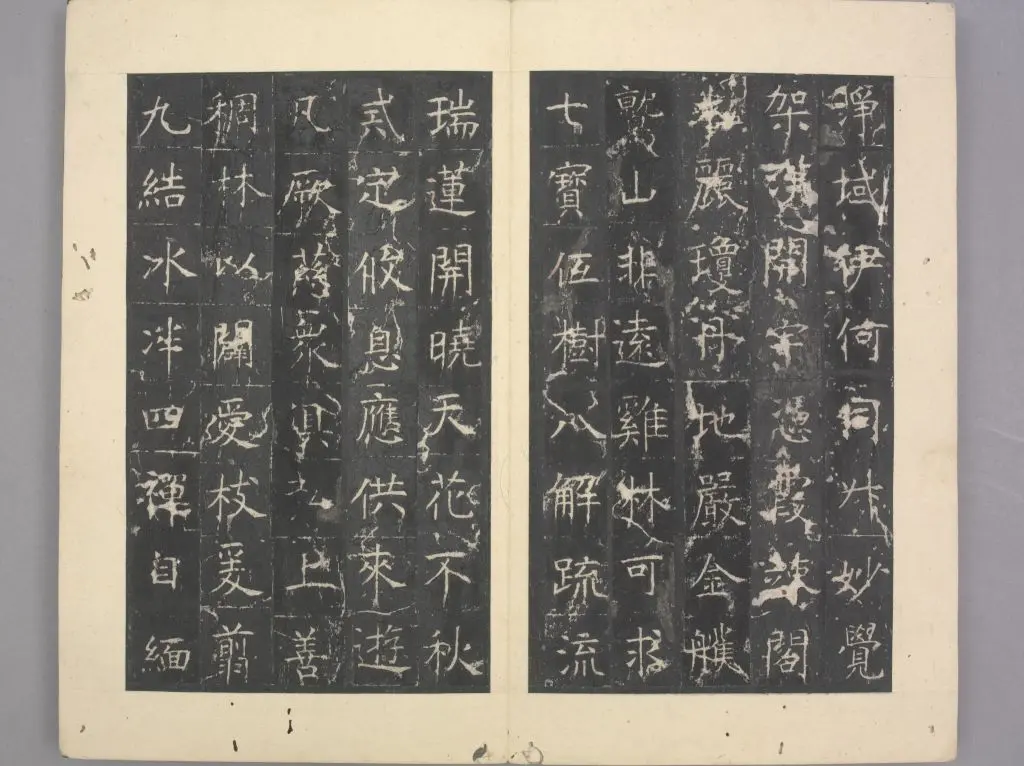 淨域伊何同升妙覺
架漢開宇憑霞竦閣
麗瓊丹地嚴金艧
鷲山非遠雞林可求
七寶伍樹八解疏流
瑞蓮開曉天花不秋
弍定攸息應供來遊
凡厥衆弘上善
稠林以闢愛枝爰翦
九結冰泮四禪自緬